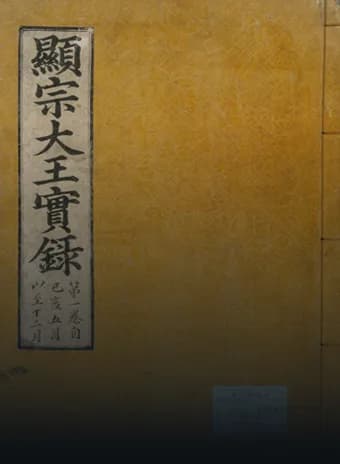 顯宗大王實錄
第一卷自
己亥五月
以至十二月